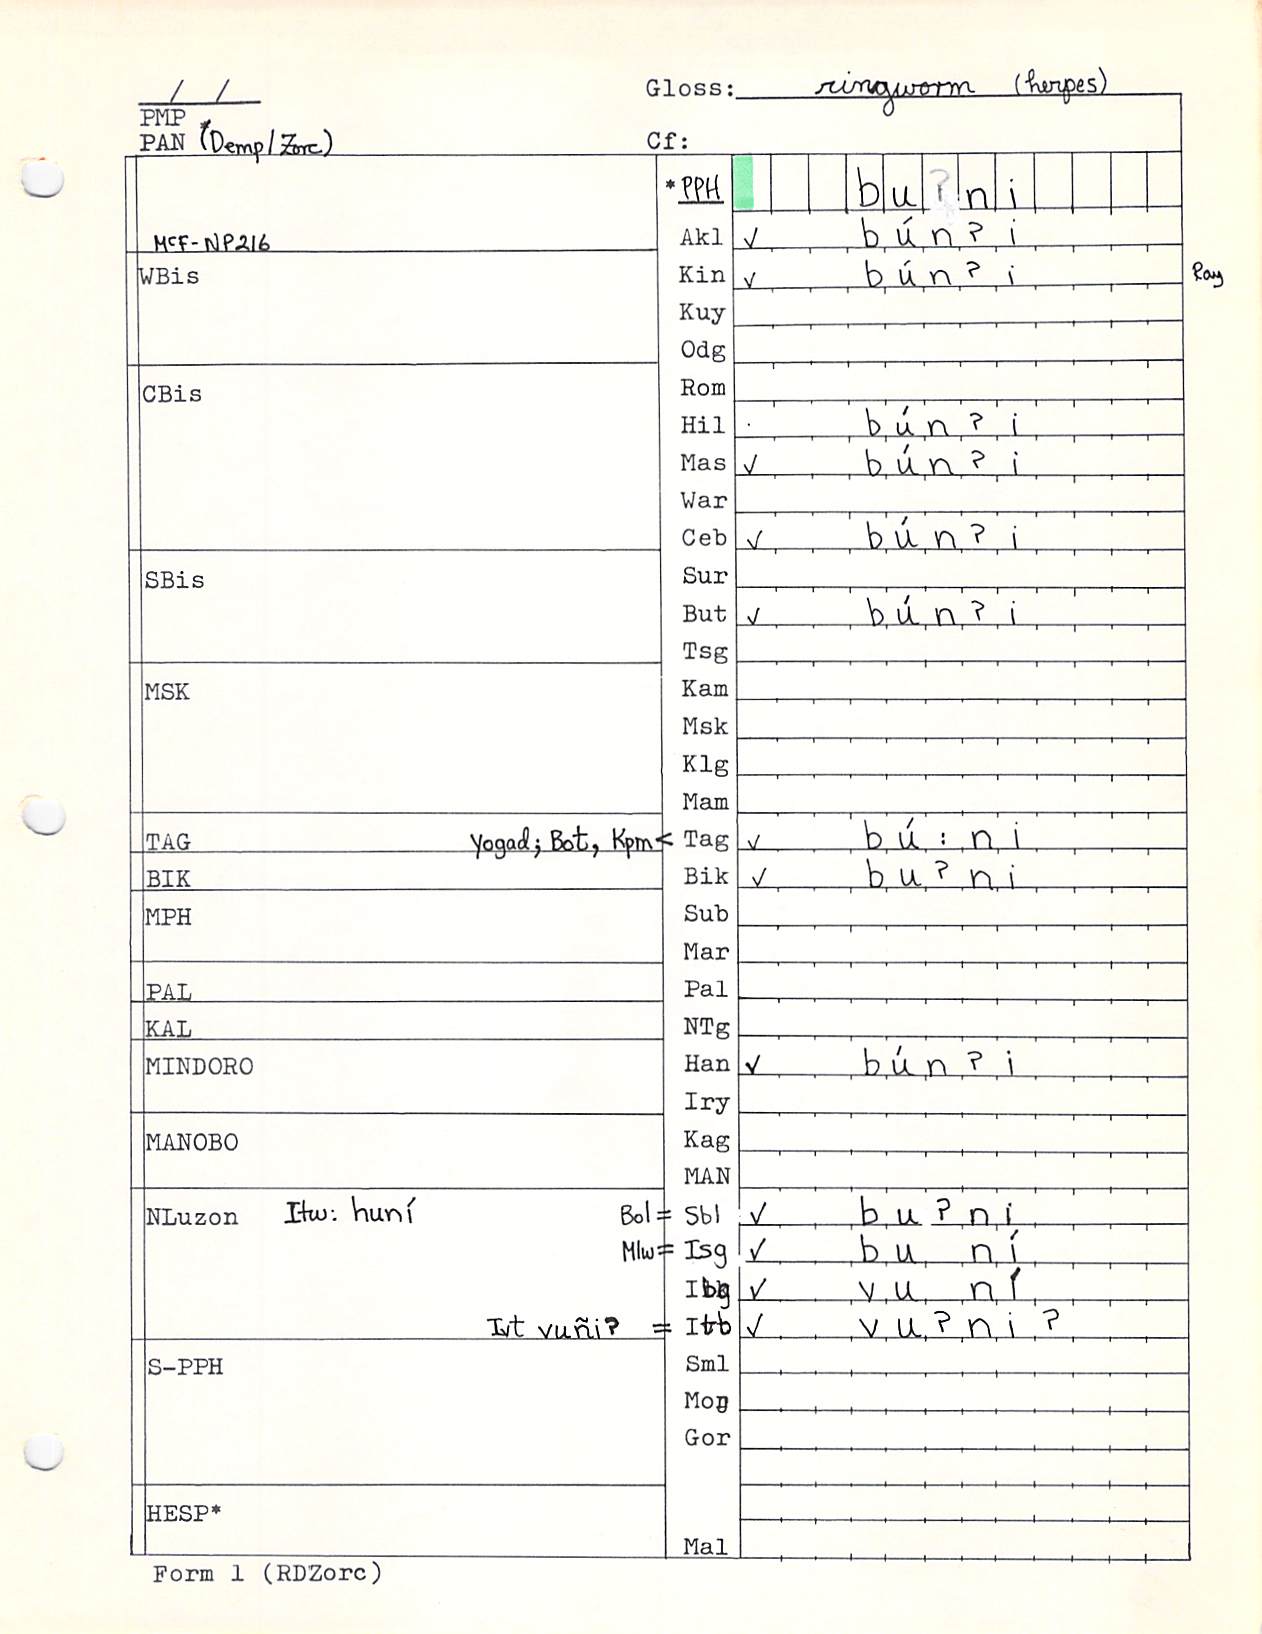 / /
Gloss: ringworm (herpes)
PMP
PAN *(Demp/Zorc)
Cf:
*PPH bu?ni
McF-NP216
Akl ✓ bún?i
WBis
Kin ✓ bún?i Ray
Kuy
Odg
CBis
Rom
Hil . bún?i
Mas ✓ bún?i
War
Ceb ✓ bún?i
SBis
Sur
But ✓ bún?i
Tsg
MSK
Kam
Msk
Klg
Mam
TAG Yogad; Bot, Kpm < Tag ✓ bú:ni
BIK Bik ✓ bu?ni
MPH Sub
Mar
PAL Pal
KAL NTg
MINDORO Han ✓ bún?i
Iry
MANOBO Kag
MAN
NLuzon Itw: huní Bol = Sbl ✓ bu?ni
Mlw = Isg ✓ bu ní
Ibg ✓ vu ní
Ivt vuñi? = Itb ✓ vu?ni?
S-PPH Sml
Mon
Gor
HESP*
Mal
Form 1 (RDZorc)